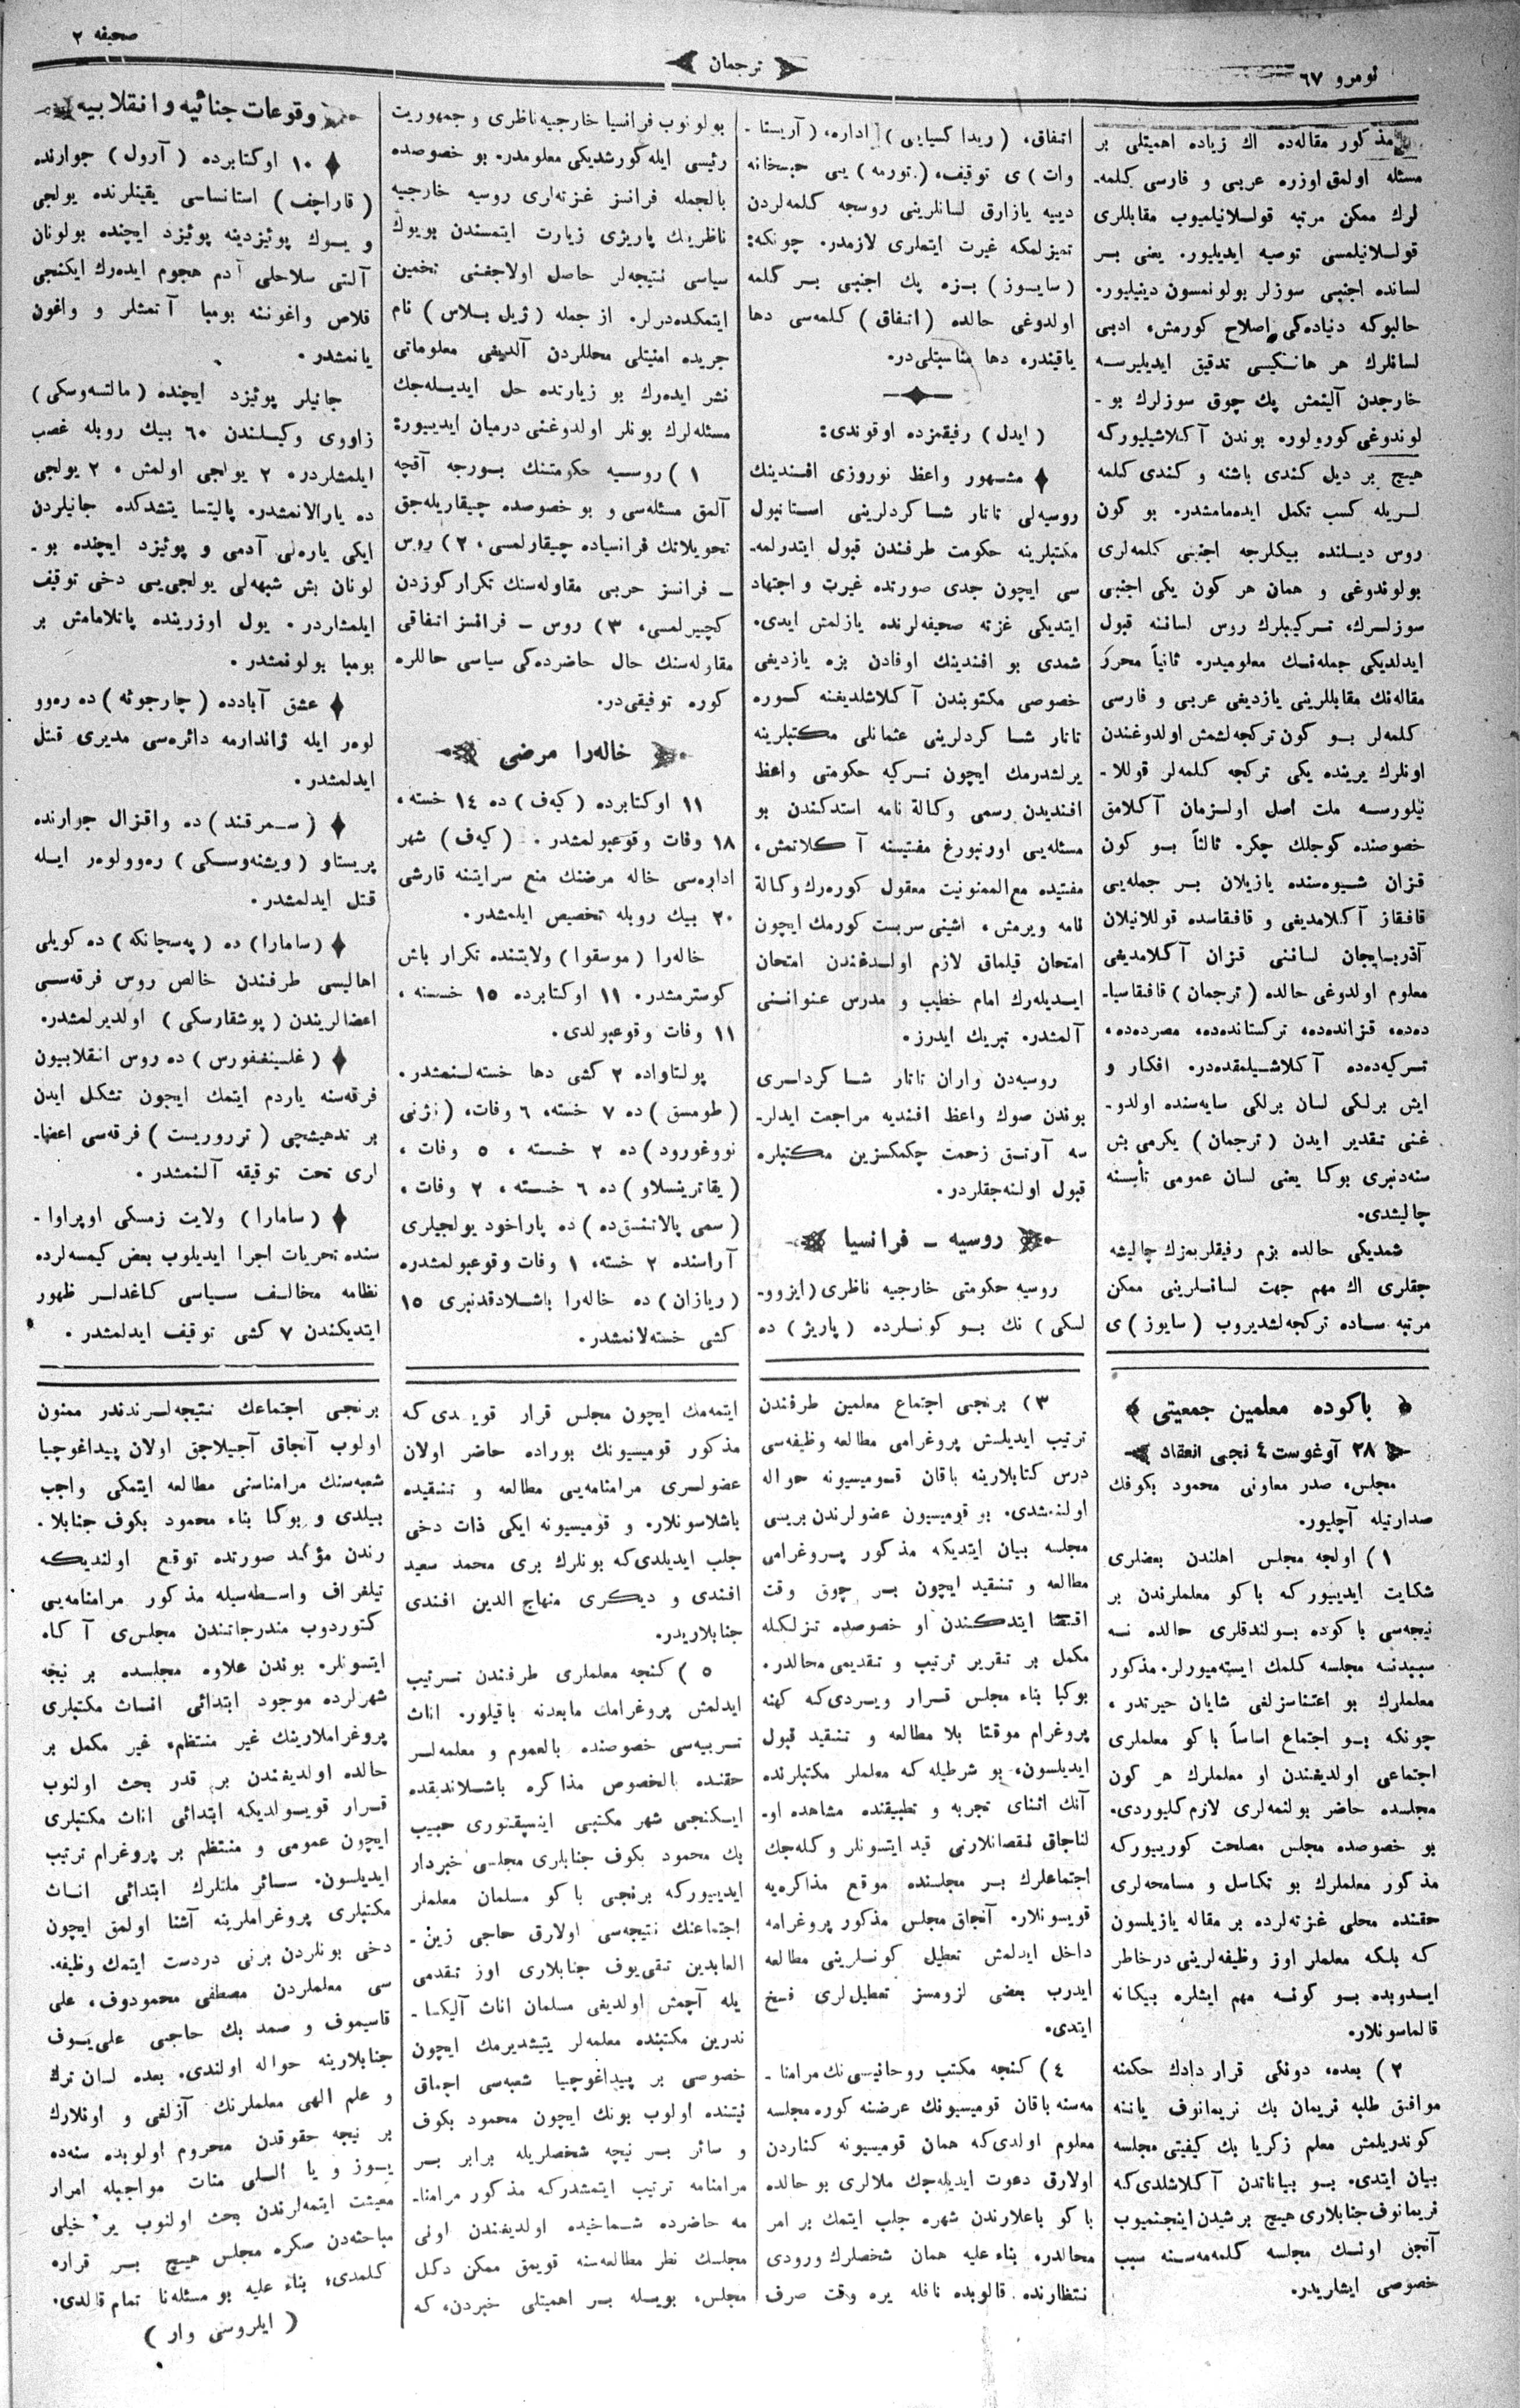 نومرو ٦٧
ترجمان
صحیفه ٢
مذکور مقاله‌ده اك زیاده اهمیتلی بر
مسئله اولمق اوزره عربی و فارسی کلمه‌-
لرك ممکن مرتبه قوللانیلمیوب مقابللری
قوللانیلمسی توصیه ایدیلیور. یعنی بر
لسانده اجنبی سوزلر بولونمسون دینیلیور.
حالبوکه دنیاده‌کی اصلاح کورمش، ادبی
لسانلرك هر هانکیسی تدقیق ایدیلیرسه
خارجدن آلینمش پك چوق سوزلرك بو-
لوندوغی کورولور، بوندن آکلاشیلیورکه
هیچ بر دیل کندی باشنه و کندی کلمه
لریله کسب تکمل ایده‌مامشدر. بو کون
روس دیلنده بیکلرجه اجنبی کلمه‌لری
بولوندوغی و همان هر کون یکی اجنبی
سوزلرك، ترکیبلرك روس لساننه قبول
ایدلدیکی جمله‌نك معلومیدر. ثانیاً محرر
مقاله‌نك مقابللرینی یازدیغی عربی و فارسی
کلمه‌لر بو کون ترکجه‌لشمش اولدوغندن
اونلرك یرینده یکی ترکجه کلمه‌لر قوللا-
نیلورسه ملت اصل اولزمان آکلامق
خصوصنده کوجلك چکر. ثالثاً بو کون
قزان شیوه‌سنده یازیلان بر جمله‌یی
قافقاز آکلامدیغی و قافقاسده قوللانیلان
آذربایجان لساننی قزان آکلامدیغی
معلوم اولدوغی حالده (ترجمان) قافقاسیا-
ده‌ده، قزانده‌ده، ترکستانده‌ده، مصرده‌ده،
ترکیه‌ده‌ده آکلاشیلمقده‌در. افکار و
ایش برلکی لسان برلکی سایه‌سنده اولدو-
غنی تقدیر ایدن (ترجمان) یکرمی بش
سنه‌دنبری بوکا یعنی لسان عمومی تأسیسنه
چالیشدی.
شمدیکی حالده بزم رفیقلریمزك چالیشه
جقلری اك مهم جهت لسانلرینی ممکن
مرتبه ساده ترکجه‌لشدیروب (سایوز) ی
اتفاق، (ریداکسیایی) اداره، (آریستا-
وات) ی توقیف، (تورمه) یی حبسخانه
دییه یازارق لسانلرینی روسجه کلمه‌لردن
تمیزلمکه غیرت ایتملری لازمدر. چونکه:
(سایوز) بزه پك اجنبی بر کلمه
اولدوغی حالده (اتفاق) کلمه‌سی دها
یاقیندر، دها مناسبتلی‌در.
(ایدل) رفیقمزده اوقوندی:
مشهور واعظ نوروزی افندینك
روسیه‌لی تاتار شاکردلرینی استانبول
مکتبلرینه حکومت طرفندن قبول ایتدرلمه-
سی ایچون جدی صورتده غیرت و اجتهاد
ایتدیکی غزته صحیفه‌لرنده یازلمش ایدی.
شمدی بو افندینك اوفادن بزه یازدیغی
خصوصی مکتوبندن آکلاشلدیغنه کوره
تاتار شاکردلرینی عثمانلی مکتبلرینه
یرلشدرمك ایچون ترکیه حکومتی واعظ
افندیدن رسمی وکالة نامه استدکندن بو
مسئله‌یی اورنبورغ مفتیسنه آکلاتمش،
مفتیده مع الممنونیت معقول کوره‌رك وکالة
نامه ویرمش، اشینی سربست کورمك ایچون
امتحان قیلماق لازم اولدغندن امتحان
ایدیله‌رك امام خطیب و مدرس عنوانینی
آلمشدر. تبریك ایدرز.
روسیه‌دن واران تاتار شاکردلری
بوندن صوك واعظ افندیه مراجعت ایدلر-
سه آرتق زحمت چکمکسزین مکتبلره
قبول اولنه‌جقلردر.
روسیه - فرانسیا
روسیه حکومتی خارجیه ناظری (ایزوو-
لسکی) نك بو کونلرده (پاریژ) ده
بولونوب فرانسیا خارجیه ناظری و جمهوریت
رئیسی ایله کورشدیکی معلومدر. بو خصوصده
بالجمله فرانسز غزته‌لری روسیه خارجیه
ناظرینك پاریژی زیارت ایتمسندن بویوك
سیاسی نتیجه‌لر حاصل اولاجغنی تخمین
ایتمکده‌درلر. از جمله (ژیل بلاس) نام
جریده امنیتلی محللردن آلدیغی معلوماتی
نشر ایده‌رك بو زیارتده حل ایدیله‌جك
مسئله‌لرك بونلر اولدوغنی درمیان ایدییور:
١) روسیه حکومتنك بورجه آقچه
آلمق مسئله‌سی و بو خصوصده چیقاریله‌جق
تحویلاتك فرانسیاده چیقارلمسی، ٢) روس
- فرانسز حربی مقاوله‌سنك تکرار کوزدن
کچیرلمسی، ٣) روس - فرانسز اتفاقی
مقاوله‌سنك حال حاضرده‌کی سیاسی حاللره
کوره توفیقی‌در.
خاله‌را مرضی
١١ اوکتابرده (کیه‌ف) ده ١٤ خسته،
١٨ وفات وقوعبولمشدر. (کیه‌ف) شهر
اداره‌سی خاله مرضنك منع سرایتنه قارشی
٢٠ بیك روبله تخصیص ایلمشدر.
خاله‌را (موسقوا) ولایتنده تکرار باش
کوسترمشدر. ١١ اوکتابرده ١٥ خسته،
١١ وفات وقوعبولدی.
پولتاواده ٢ کشی دها خسته‌لنمشدر.
(طومسق) ده ٧ خسته، ٦ وفات، (نژنی
نووغورود) ده ٢ خسته، ٥ وفات،
(یقاترینسلاو) ده ٦ خسته، ٢ وفات،
(سمی پالاتنسق‌ده) ده پاراخود یولجیلری
آراسنده ٢ خسته، ١ وفات وقوعبولمشدر،
(ریازان) ده خاله‌را باشلادقدنبری ١٥
کشی خسته‌لانمشدر.
وقوعات جنائیه و انقلابیه
١٠ اوکتابرده (آرول) جوارنده
(قاراچف) استانساسی یقینلرنده یولجی
و یوك پوئیزدینه پوئیزد ایچنده بولونان
آلتی سلاحلی آدم هجوم ایده‌رك ایکنجی
قلاص واغوننه بومبا آتمشلر و واغون
یانمشدر.
جانیلر پوئیزد ایچنده (مالتسه‌وسکی)
زاووی وکیلندن ٦٠ بیك روبله غصب
ایلمشلردر، ٢ یولجی اولمش، ٢ یولجی
ده یارالانمشدر. پالیتسا یتشدکده جانیلردن
ایکی یاره‌لی آدمی و پوئیزد ایچنده بو-
لونان بش شبهه‌لی یولجی‌یی دخی توقیف
ایلمشلردر. یول اوزرینده پاتلامامش بر
بومبا بولونمشدر.
عشق آبادده (چارجوئه) ده ره‌وو
لوه‌ر ایله ژاندارمه دائره‌سی مدیری قتل
ایدلمشدر.
(سمرقند) ده واقزال جوارنده
پریستاو (ویشنه‌وسکی) ره‌وولوه‌ر ایله
قتل ایدلمشدر.
(سامارا) ده (په‌سچانکه) ده کویلی
اهالیسی طرفندن خالص روس فرقه‌سی
اعضالریندن (پوشقارسکی) اولدیرلمشدر.
(غلسینغفورس) ده روس انقلابیون
فرقه‌سنه یاردم ایتمك ایچون تشکل ایدن
بر تدهیشچی (ترروریست) فرقه‌سی اعضا-
لری تحت توقیفه آلنمشدر.
(سامارا) ولایت زمسکی اوپراوا-
سنده تحریات اجرا ایدیلوب بعض کیمسه‌لرده
نظامه مخالف سیاسی کاغدلر ظهور
ایتدیکندن ٧ کشی توقیف ایدلمشدر.
باکوده معلمین جمعیتی
٢٨ آوغوست ٤ نجی انعقاد
مجلس، صدر معاونی محمود بکوفك
صدارتیله آچلیور.
١) اولجه مجلس اهلندن بعضلری
شکایت ایدییورکه باکو معلملرندن بر
نیجه‌سی باکوده بولندقلری حالده نه
سببدنسه مجلسه کلمك ایسته‌میورلر. مذکور
معلملرك بو اعتناسزلغی شایان حیرتدر،
چونکه بو اجتماع اساساً باکو معلملری
اجتماعی اولدیغندن او معلملرك هر کون
مجلسده حاضر بولنمه‌لری لازم کلیوردی.
بو خصوصده مجلس مصلحت کورییورکه
مذکور معلملرك بو تکاسل و مسامحه‌لری
حقنده محلی غزته‌لرده بر مقاله یازیلسون
که بلکه معلملر اوز وظیفه‌لرینی درخاطر
ایدوبده بو کونه مهم ایشلره بیکانه
قالماسونلار.
٢) بعده، دونکی قرار دادك حکمنه
موافق طلبه نریمان بك نریمانوف یاننه
کوندریلمش معلم زکریا بك کیفیتی مجلسه
بیان ایتدی. بو بیاناتدن آکلاشلدی‌که
نریمانوف جنابلاری هیچ بر شیدن اینجنمیوب
آنجق اونك مجلسه کلمه‌مه‌سنه سبب
خصوصی ایشلریدر.
٣) برنجی اجتماع معلمین طرفندن
ترتیب ایدیلمش پروغرامی مطالعه وظیفه‌سی
درس کتابلارینه باقان قومیسیونه حواله
اولنمشدی. بو قومیسیون عضولرندن بریسی
مجلسه بیان ایتدیکه مذکور پروغرامی
مطالعه و تنقید ایچون بر چوق وقت
اقتضا ایتدکندن او خصوصده تزلکله
مکمل بر تقریر ترتیب و تقدیمی محالدر.
بوکا بناء مجلس قرار ویردی‌که کهنه
پروغرام موقتا بلا مطالعه و تنقید قبول
ایدیلسون، بو شرطیله که معلملر مکتبلرنده
آنك اثنای تجربه و تطبیقنده مشاهده او-
لناجاق نقصانلارنی قید ایتسونلر و کله‌جك
اجتماعلرك بر مجلسنده موقع مذاکره‌یه
قویسونلار. آنجاق مجلس مذکور پروغرامه
داخل ایدلمش تعطیل کونلرینی مطالعه
ایدرب بعضی لزومسز تعطیل‌لری فسخ
ایتدی.
٤) کنجه مکتب روحانیسی‌نك مرامنا-
مه‌سنه باقان قومیسیونك عرضنه کوره مجلسه
معلوم اولدی‌که همان قومیسیونه کناردن
اولارق دعوت ایدیله‌جك ملالری بو حالده
باکو باغلارندن شهره جلب ایتمك بر امر
محالدر، بناء علیه همان شخصلرك ورودی
نتظارنده قالوبده نافله یره وقت صرف
ایتمه‌مك ایچون مجلس قرار قویدی‌که
مذکور قومیسیونك بوراده حاضر اولان
عضولری مرامنامه‌یی مطالعه و تنقیده
باشلاسونلار. و قومیسیونه ایکی ذات دخی
جلب ایدیلدی‌که بونلرك بری محمد سعید
افندی و دیکری منهاج الدین افندی
جنابلاریدر.
٥) کنجه معلملری طرفندن ترتیب
ایدلمش پروغرامك مابعدنه باقیلور. اناث
تربیه‌سی خصوصنده بالعموم و معلمه‌لر
حقنده بالخصوص مذاکره باشلاندیقده
ایکنجی شهر مکتبی اینسپقتوری حبیب
بك محمود بکوف جنابلری مجلسی خبردار
ایدییورکه برنجی باکو مسلمان معلملر
اجتماعنك نتیجه‌سی اولارق حاجی زین-
العابدین تقی‌یوف جنابلاری اوز تقدمی
یله آچمش اولدیغی مسلمان اناث آلیکسا-
ندرین مکتبنده معلمه‌لر یتیشدیرمك ایچون
خصوصی بر پیداغوجیا شعبه‌سی اچماق
نیتنده اولوب بونك ایچون محمود بکوف
و سائر بر نیچه شخصلریله برابر بر
مرامنامه ترتیب ایتمشدرکه مذکور مرامنا-
مه حاضرده شماخیده اولدیغندن اونی
مجلسك نظر مطالعه‌سنه قویمق ممکن دکل
مجلس، بویله بر اهمیتلی خبردن، که
برنجی اجتماعك نتیجه‌لرندندر ممنون
اولوب آنجاق آجیلاجق اولان پیداغوجیا
شعبه‌سنك مرامناسنی مطالعه ایتمکی واجب
بیلدی و بوکا بناء محمود بکوف جنابلا-
رندن مؤکد صورتده توقع اولندیکه
تیلغراف واسطه‌سیله مذکور مرامنامه‌یی
کتوردوب مندرجاتندن مجلس‌ی آکاه
ایتسونلر. بوندن علاوه مجلسده بر نیچه
شهرلرده موجود ابتدائی اناث مکتبلری
پروغراملارینك غیر منتظم، غیر مکمل بر
حالده اولدیغندن بر قدر بحث اولنوب
قرار قویولدیکه ابتدائی اناث مکتبلری
ایچون عمومی و منتظم بر پروغرام ترتیب
ایدیلسون. سائر ملتلرك ابتدائی اناث
مکتبلری پروغراملرینه آشنا اولمق ایچون
دخی بونلردن برنی دردست ایتمك وظیفه-
سی معلملردن مصطفی محمودوف، علی
قاسیموف و صمد بك حاجی علی‌یوف
جنابلارینه حواله اولندی. بعده لسان ترك
و علم الهی معلملرنك آزلغی و اونلارك
بر نیجه حقوقدن محروم اولوبده سنه‌ده
یوز و یا اللی منات مواجبله امرار
معیشت ایتمه‌لرندن بحث اولنوب بر خیلی
مباحثه‌دن صکره مجلس هیچ بر قراره
کلمدی، بناء علیه بو مسئله‌نا تمام قالدی.
(ایلروسی وار)